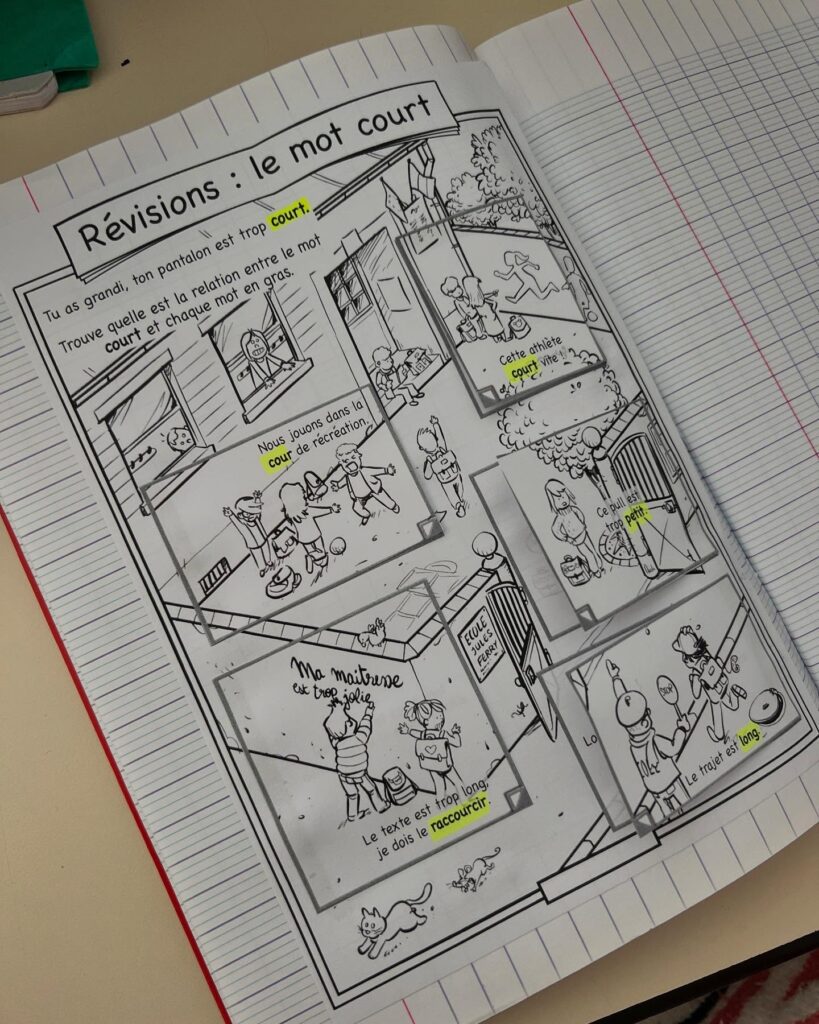 Révisions : le mot court
Tu as grandi, ton pantalon est trop court.
Trouve quelle est la relation entre le mot
court et chaque mot en gras.
Cette athlète
court vite !
Nous jouons dans la
cour de récréation.
Ce pull est
trop petit.
ÉCOLE
JULES
FERRY
Ma maitresse
est trop jolie
Le texte est trop long,
je dois le raccourcir.
Lo
STOP
Le trajet est long.